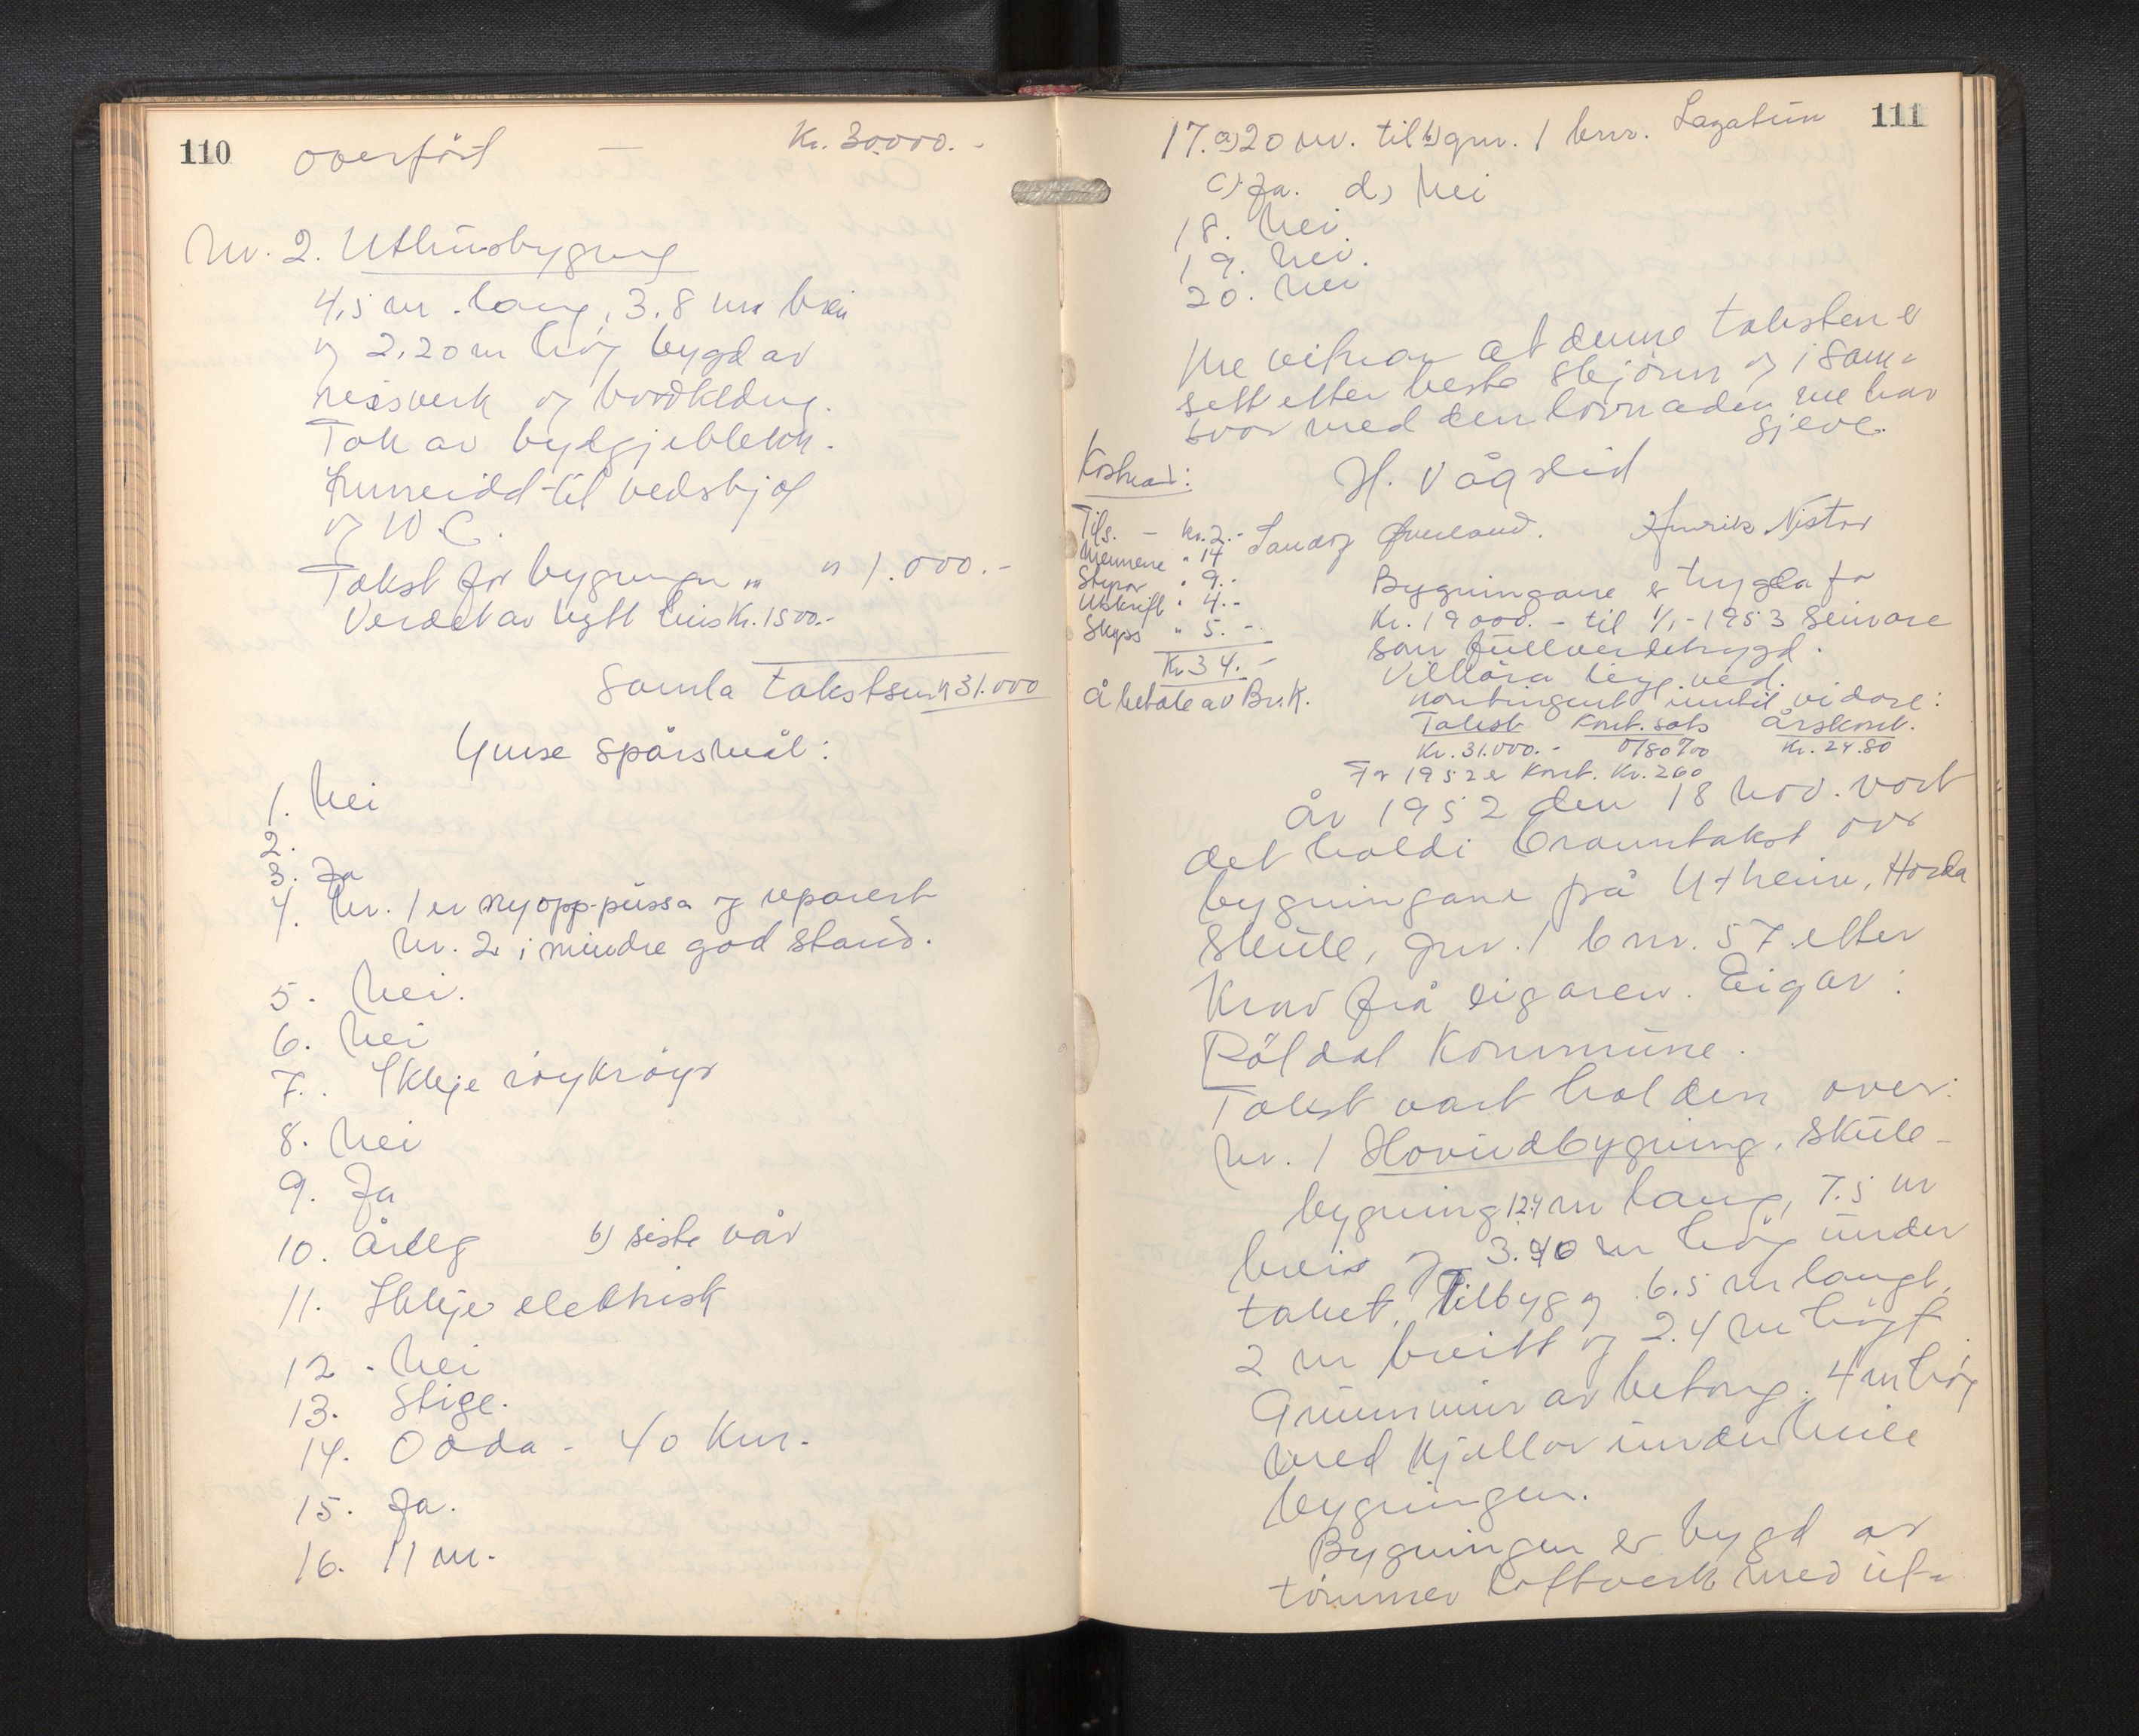 110
overfört — Kr. 30000.-
Nr. 2. Uthusbygning
4,5 m. lang, 3.8 m brei
og 2.20 m høg bygd av
reisverk og bordkledng.
Tak av bylgjeblekk.
Innreidd til vedskjol
og W.C.
Takst for bygningen " " 1.000.-
Verdet av nytt hus Kr. 1500.-
Samla takstsum Kr 31.000
Ymse spørsmål:
1. Nei
2.
3. Ja
4. Nr. 1 er nyopp-pussa og reparert
Nr. 2 i mindre god stand.
5. Nei.
6. Nei
7. Ikkje røykrøyr
8. Nei
9. Ja
10. Årleg b) siste vår
11. Ikkje elektrisk
12. Nei
13. Stige.
14. Odda - 40 km.
15. Ja.
16. 11 m.
111
17. a) 20 m. til b) gnr. 1 bnr. Lagatun
c) Ja. d) Nei
18. Nei.
19. Nei.
20. Nei
Me vitnar at denne taksten er
sett etter beste skjønn og i sam-
svar med den lovnaden me har
gjeve.
Kostnad:
H. Vågslid
Henrik Nistor
Tils. - kr. 2.-
Mennene " 14
Styrar " 9.-
Utskrift " 4.-
Skyss " 5.-
Kr. 34.-
Å betale av Br.K.
Bygningane er trygda for
Kr. 19000.- til 1/1-1953 seinare
som fullverdetrygd.
Vilkåra legg ved.
Kontingent inntil vidare:
Takst Kont. sats Årskont.
Kr. 31.000.- 0/80 ‰ Kr. 24.80
For 1952 er kont. Kr. 2.60
År 1952 den 18 nov. vart
det haldi branntakst over
bygningane på Utheim, Horda
Skule, gnr. 1 bnr. 57 etter
krav frå eigaren. Eigar:
Röldal Kommune.
Takst vart halden over:
Nr. 1 Hovudbygning, skule-
bygning 12.4 m lang, 7.5 m
brei og 3.40 m høg under
taket. Tilbygg 6.5 m langt,
2 m breitt og 2.4 m høgt
Grunnmur av betong. 4 m høg
med kjellar under heile
bygningen.
Bygningen er bygd av
tømmer loftverk med ut-